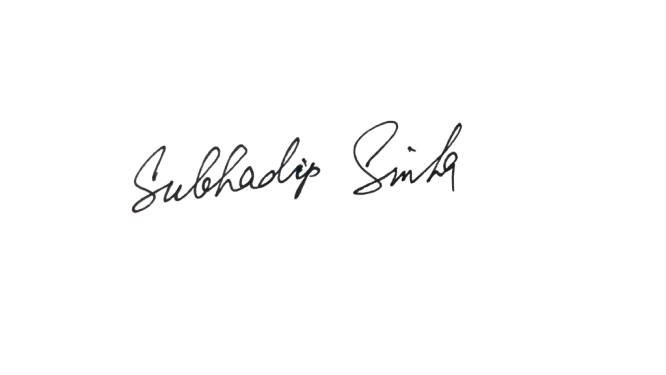 Subhadip Sinha